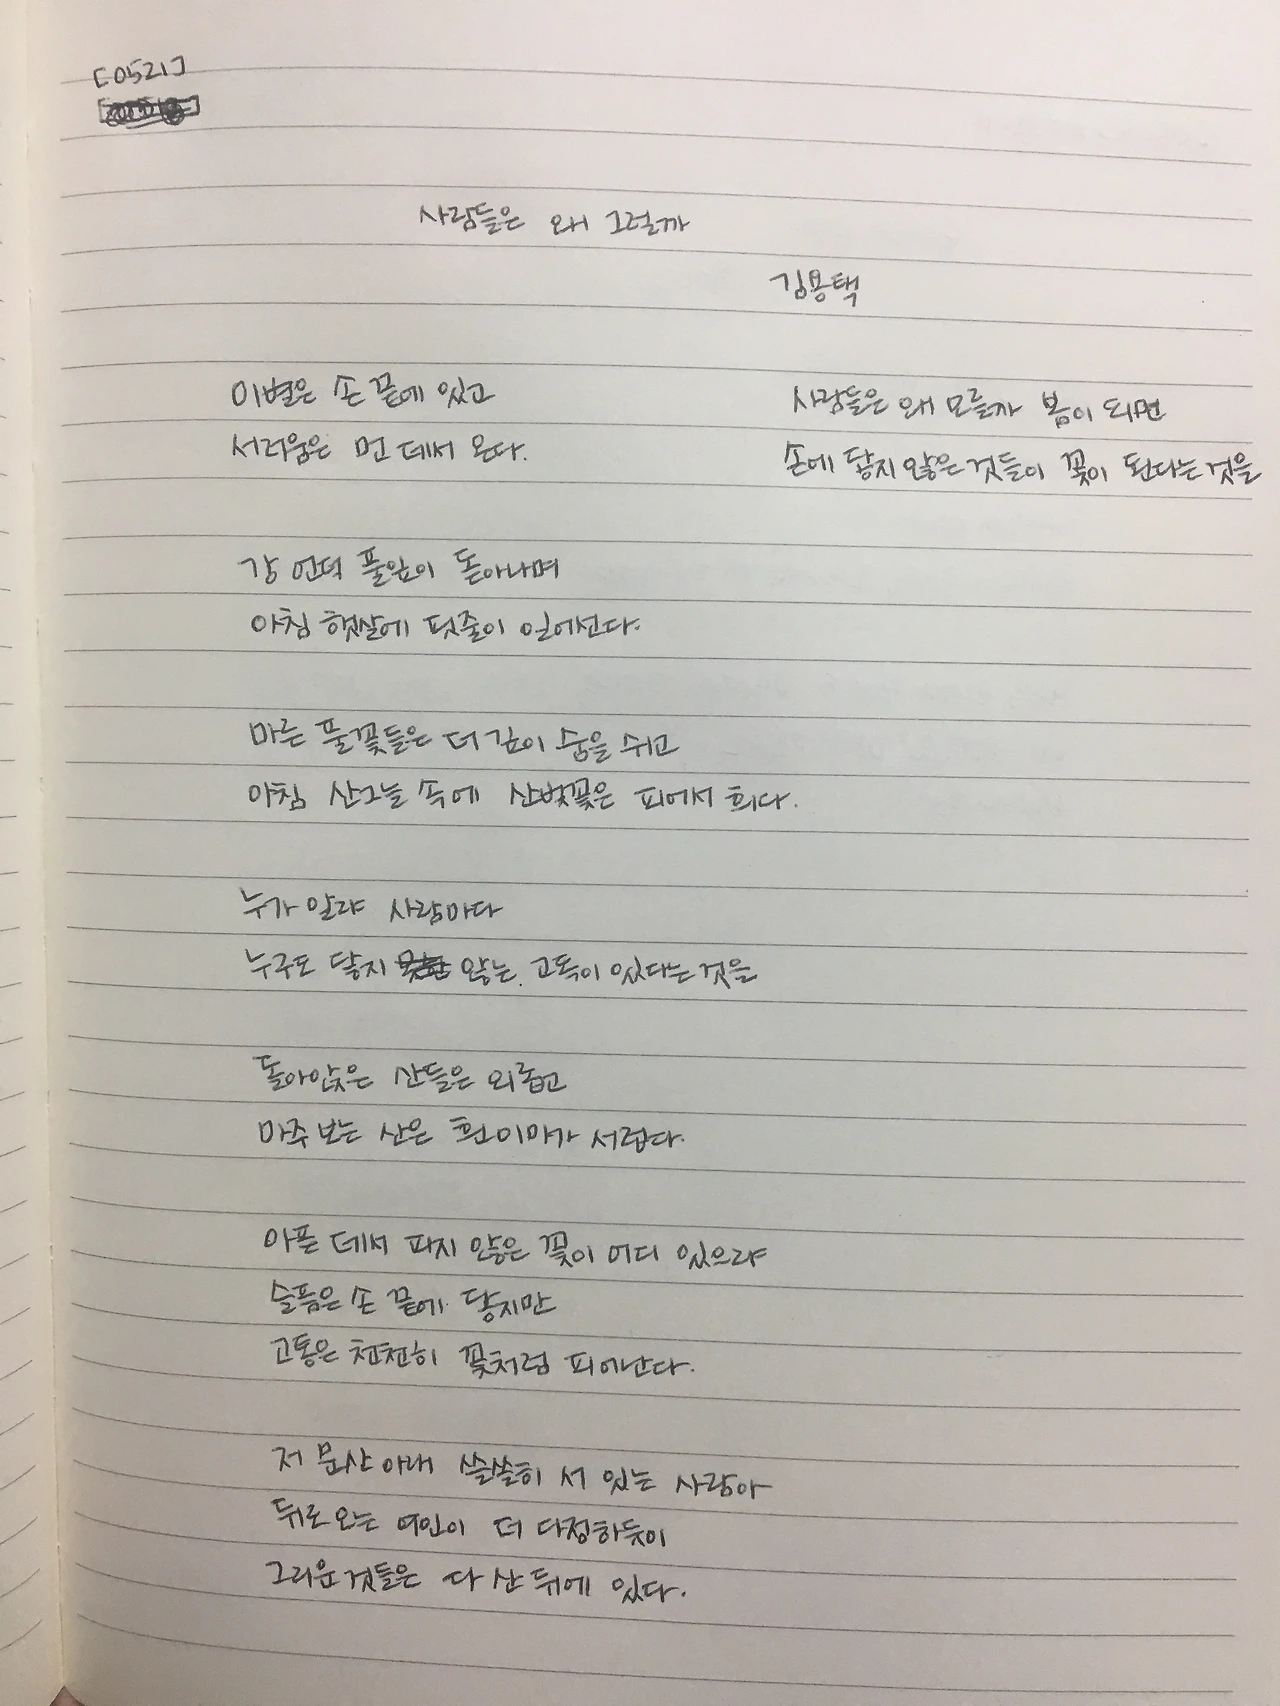 [0521]
사람들은 왜 그럴까
김용택
이별은 손 끝에 있고
서러움은 먼 데서 온다.
강 언덕 풀잎이 돋아나며
아침 햇살에 핏줄이 일어선다.
마른 풀꽃들은 더 깊이 숨을 쉬고
아침 산그늘 속에 산벚꽃은 피어서 희다.
누가 알랴 사람마다
누구도 닿지 않는 고독이 있다는 것을
돌아앉은 산들은 외롭고
마주 보는 산은 흰 이마가 서럽다.
아픈 데서 파지 않은 꽃이 어디 있으랴
슬픔은 손 끝에 닿지만
고통은 천천히 꽃처럼 피어난다.
저 문산 아래 쓸쓸히 서 있는 사람아
뒤로 오는 여인이 더 다정하듯이
그리운 것들은 다 산 뒤에 있다.
사람들은 왜 모를까 봄이 되면
손에 닿지 않은 것들이 꽃이 된다는 것을